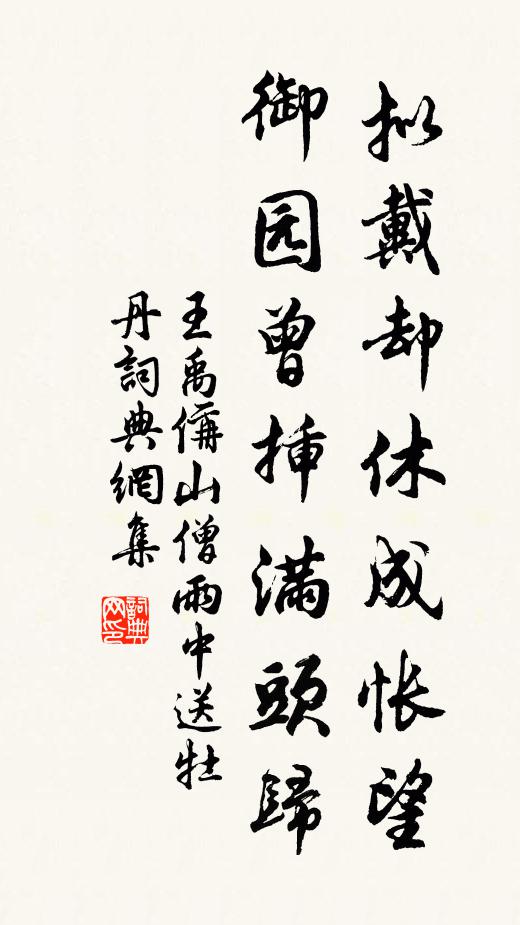 拟戴却休成怅望
御园曾插满头歸
王禹偁山僧雨中送牡
丹詞典網集
詞典
网印